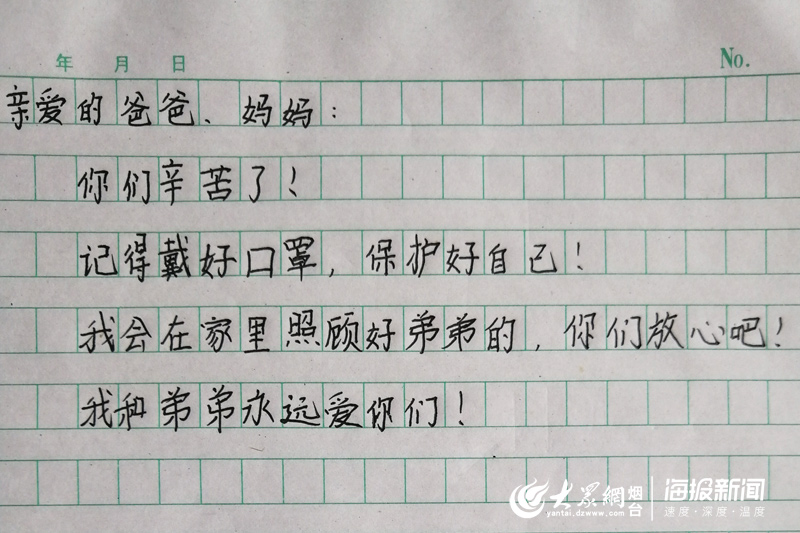 年 月 日 No.
亲爱的爸爸、妈妈：
你们辛苦了！
记得戴好口罩，保护好自己！
我会在家里照顾好弟弟的，你们放心吧！
我和弟弟永远爱你们！
大众網 烟台 海报新闻
yantai.dzwww.com 速度·深度·温度